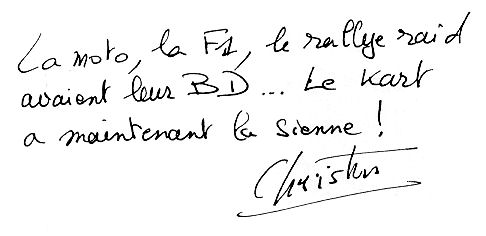 La moto, la F1, le rallye raid
avaient leur BD... Le Kart
a maintenant la sienne !